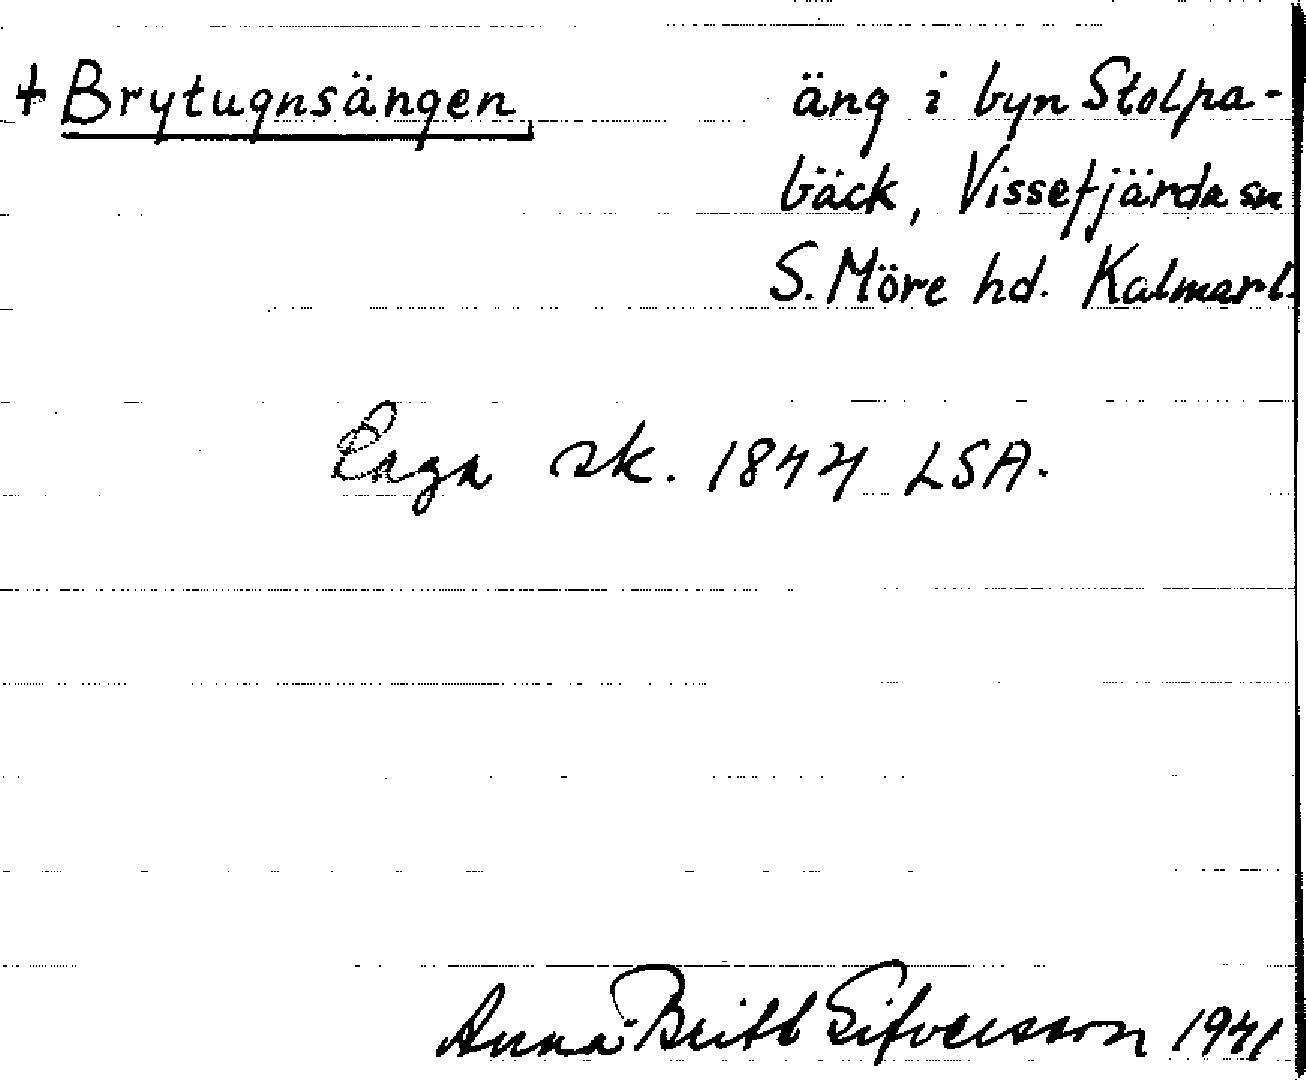 + Brytugnsängen äng i byn Stolpa-
bäck, Vissefjärda sn
S. Möre hd. Kalmarl.
Laga sk. 1844 LSA.
Anna-Britt Sifversson 1941